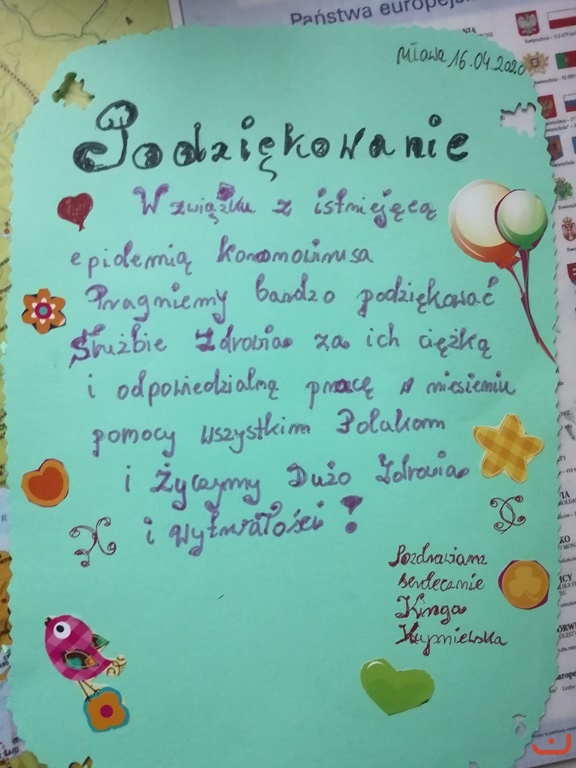 Państwa europej
Mława 16.04.2020
Podziękowanie
W związku z istniejącą
epidemią koronowirusa
Pragniemy bardzo podziękować
Służbie Zdrowia za ich ciężką
i odpowiedzialną pracę w niesieniu
pomocy wszystkim Polakom
i Życzymy Dużo Zdrowia
i wytrwałości !
Pozdrawiam
serdecznie
Kinga